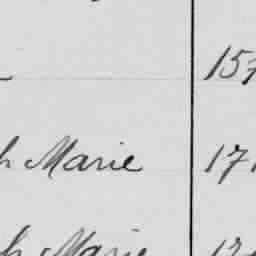 15
h Marie 17
h Marie 17